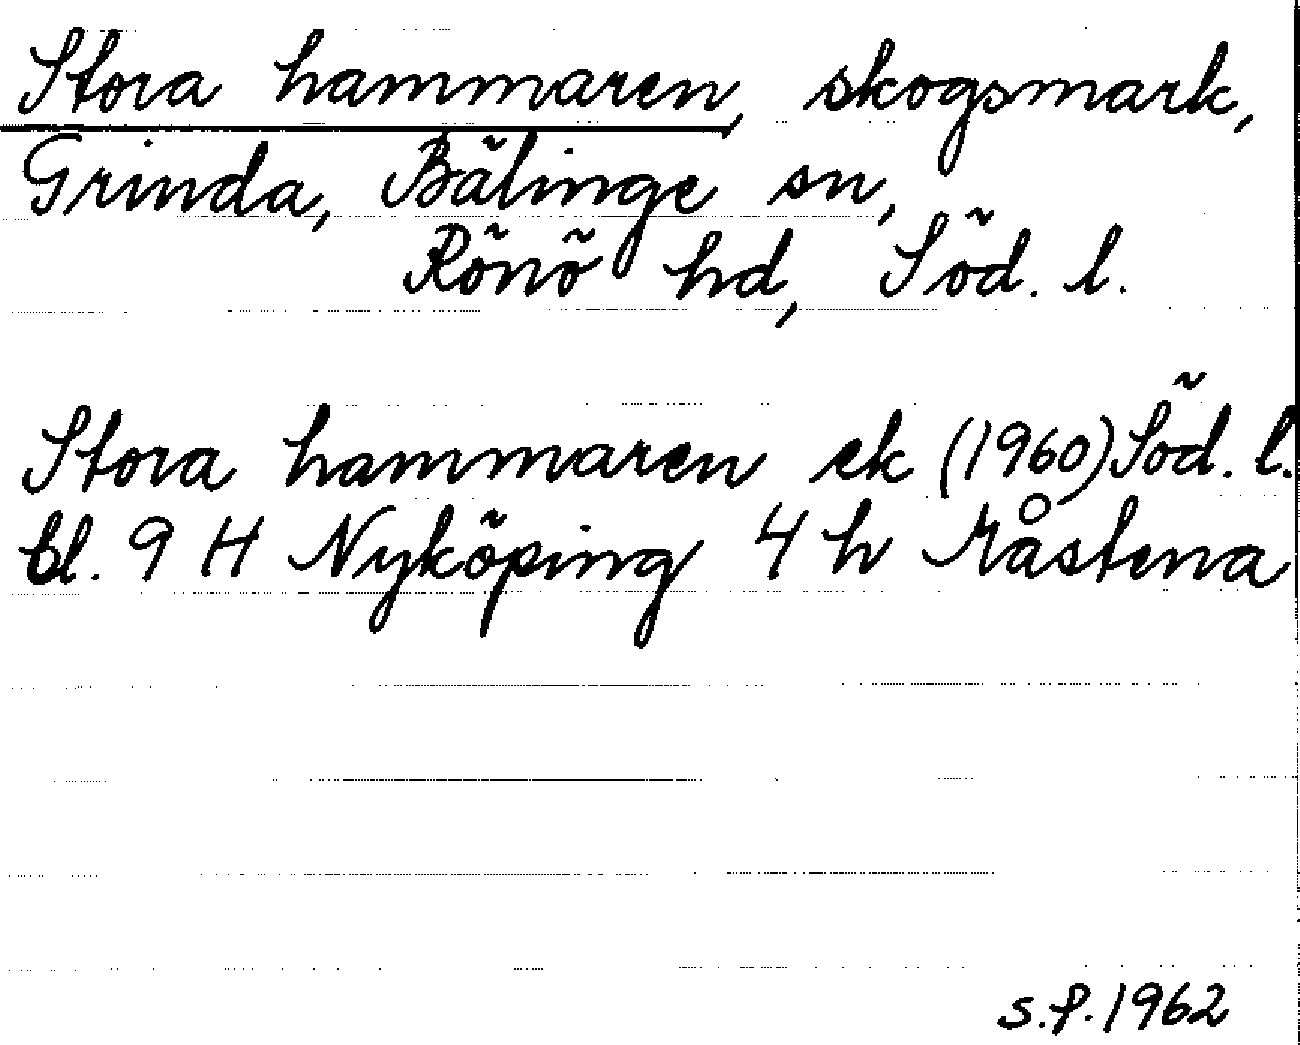 Stora hammaren, skogsmark,
Grinda, Bälinge sn,
Rönö hd, Söd. l.
Stora hammaren ek (1960) Söd. l.
bl. 9 H Nyköping 4 h Råstena
s.p. 1962